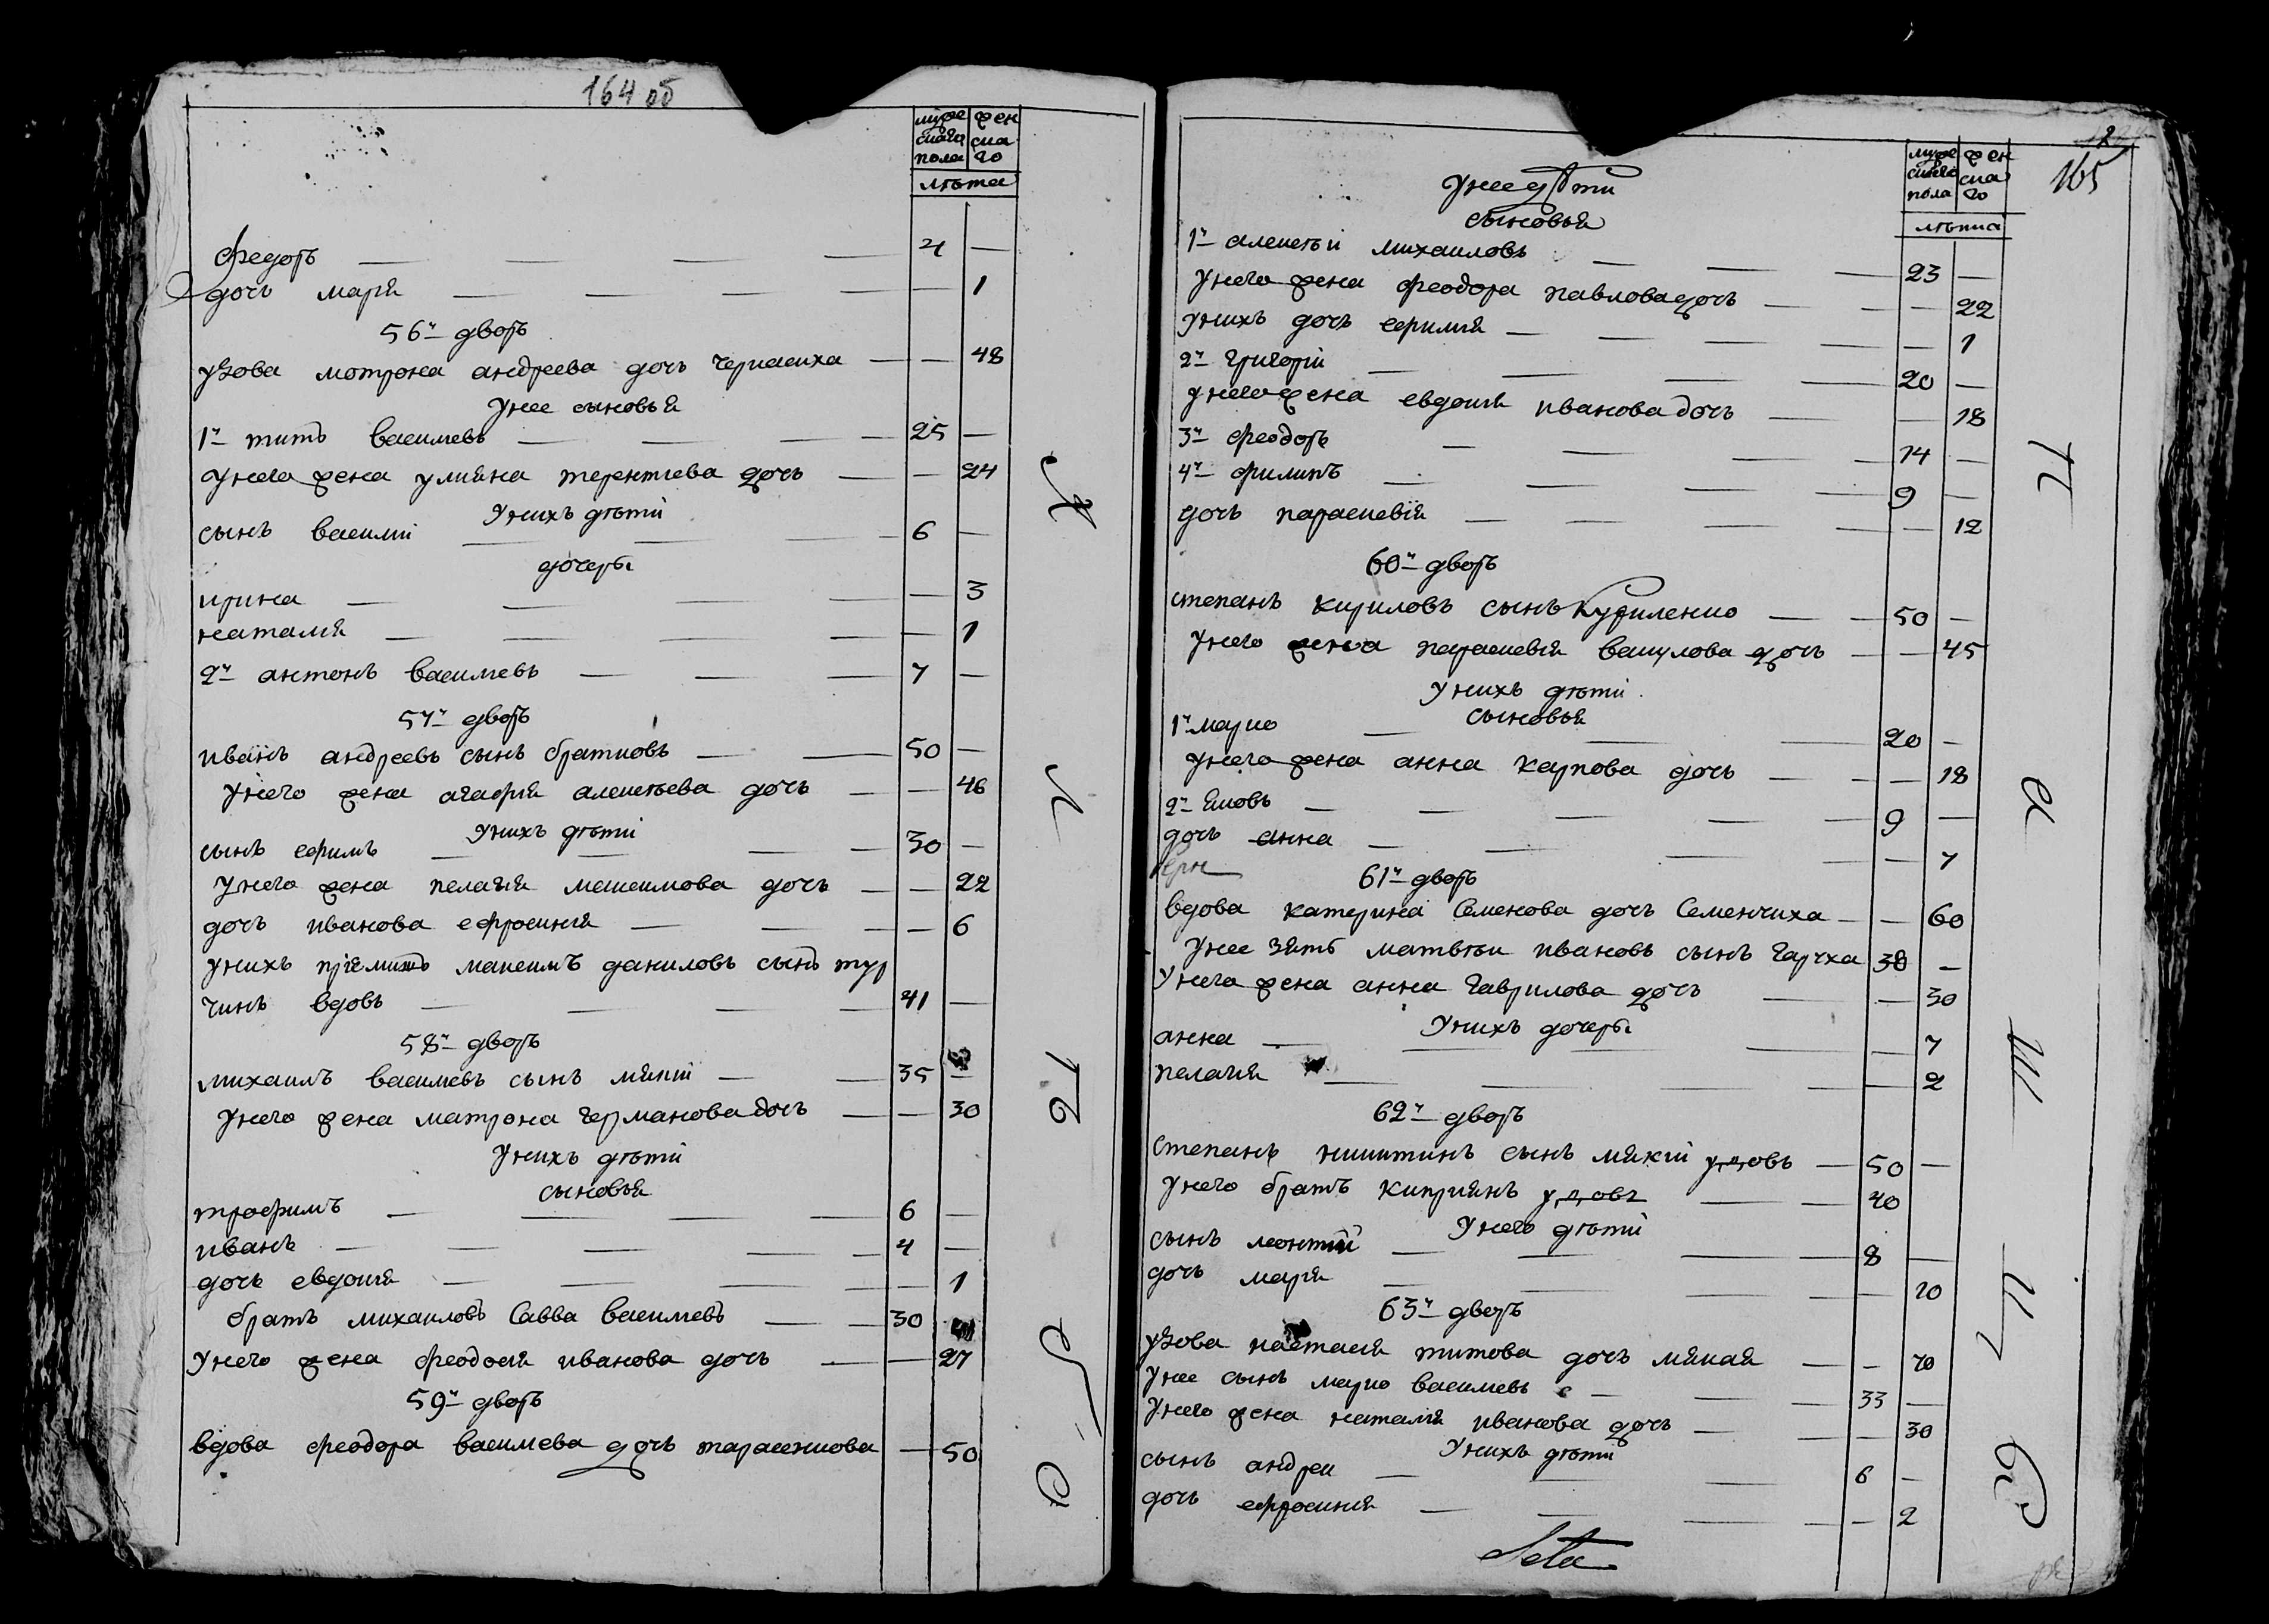 164 об
муже скага пола
жен ска го
лѣта
федоръ — — — — 4 —
дочъ марія — — — — — 1
56й дворъ
удова мотрона андреева дочъ черкасиха — — 48
у нее сыновья
1й титъ василиевъ — — — — 25 —
у него жена улияна терентиева дочъ — — 24
у нихъ дѣти
сынъ василии — — — — 6 —
дочеры
ирина — — — — — 3
наталия — — — — — 1
2й антонъ василиевъ — — — 7 —
57й дворъ
иванъ андреевъ сынъ братковъ — — 50 —
у него жена агафия алексѣева дочъ — — 46
у нихъ дѣти
сынъ ефимъ — — — — 30 —
у него жена пелагия максимова дочъ — — 22
дочъ иванова ефросиния — — — — 6
у нихъ приемишъ максимъ даниловъ сынъ тур
чинъ вдовъ — — — — 41 —
58й дворъ
михаилъ василиевъ сынъ мякии — — 35 —
у него жена матрона германова дочъ — — 30
у нихъ дѣти
сыновья
трофимъ — — — — 6 —
иванъ — — — — — 4 —
дочъ евдокия — — — — — 1
братъ михаиловъ савва василиевъ — — 30
у него жена феодосия иванова дочъ — — 27
59й дворъ
вдова феодора василиева дочъ тарасенкова — 50
165
муже скага пола
жен ска го
лѣта
у нее дѣти
сыновья
1й алексѣи михаиловъ — — — 23 —
у него жена феодора павлова дочъ — — — 22
у нихъ дочъ ефимия — — — — — 1
2й григории — — — — 20 —
у него жена евдокия иванова дочъ — — 18
3й феодоръ — — — — 14 —
4й филипъ — — — — 9 —
дочъ параскевия — — — — — 12
60й дворъ
степанъ кириловъ сынъ куриленко — — 50 —
у него жена параскевия вакулова дочъ — — 45
у нихъ дѣти
сыновья
1й марко — — — 20 —
у него жена анна карпова дочъ — — — 18
2й яковъ — — — — — 9 —
дочъ анна — — — — — 7
61й дворъ
вдова катерина семенова дочъ семенчиха — — 60
у нее зять матвѣи ивановъ сынъ гарчха 38 —
у него жена анна гаврилова дочъ — — 30
у нихъ дочеры
анна — — — — — 7
пелагия — — — — — 2
62й дворъ
степанъ никитинъ сынъ мякии удовъ — 50 —
у него братъ киприянъ удовъ — — 40
у него дѣти
сынъ леонтии — — — 8 —
дочъ мария — — — — 10
63й дворъ
удова настасия титова дочъ мякая — — 70
у нее сынъ марко василиевъ — — — 33 —
у него жена наталия иванова дочъ — — — 30
у нихъ дѣти
сынъ андреи — — — 6 —
дочъ ефросиния — — — — — 2